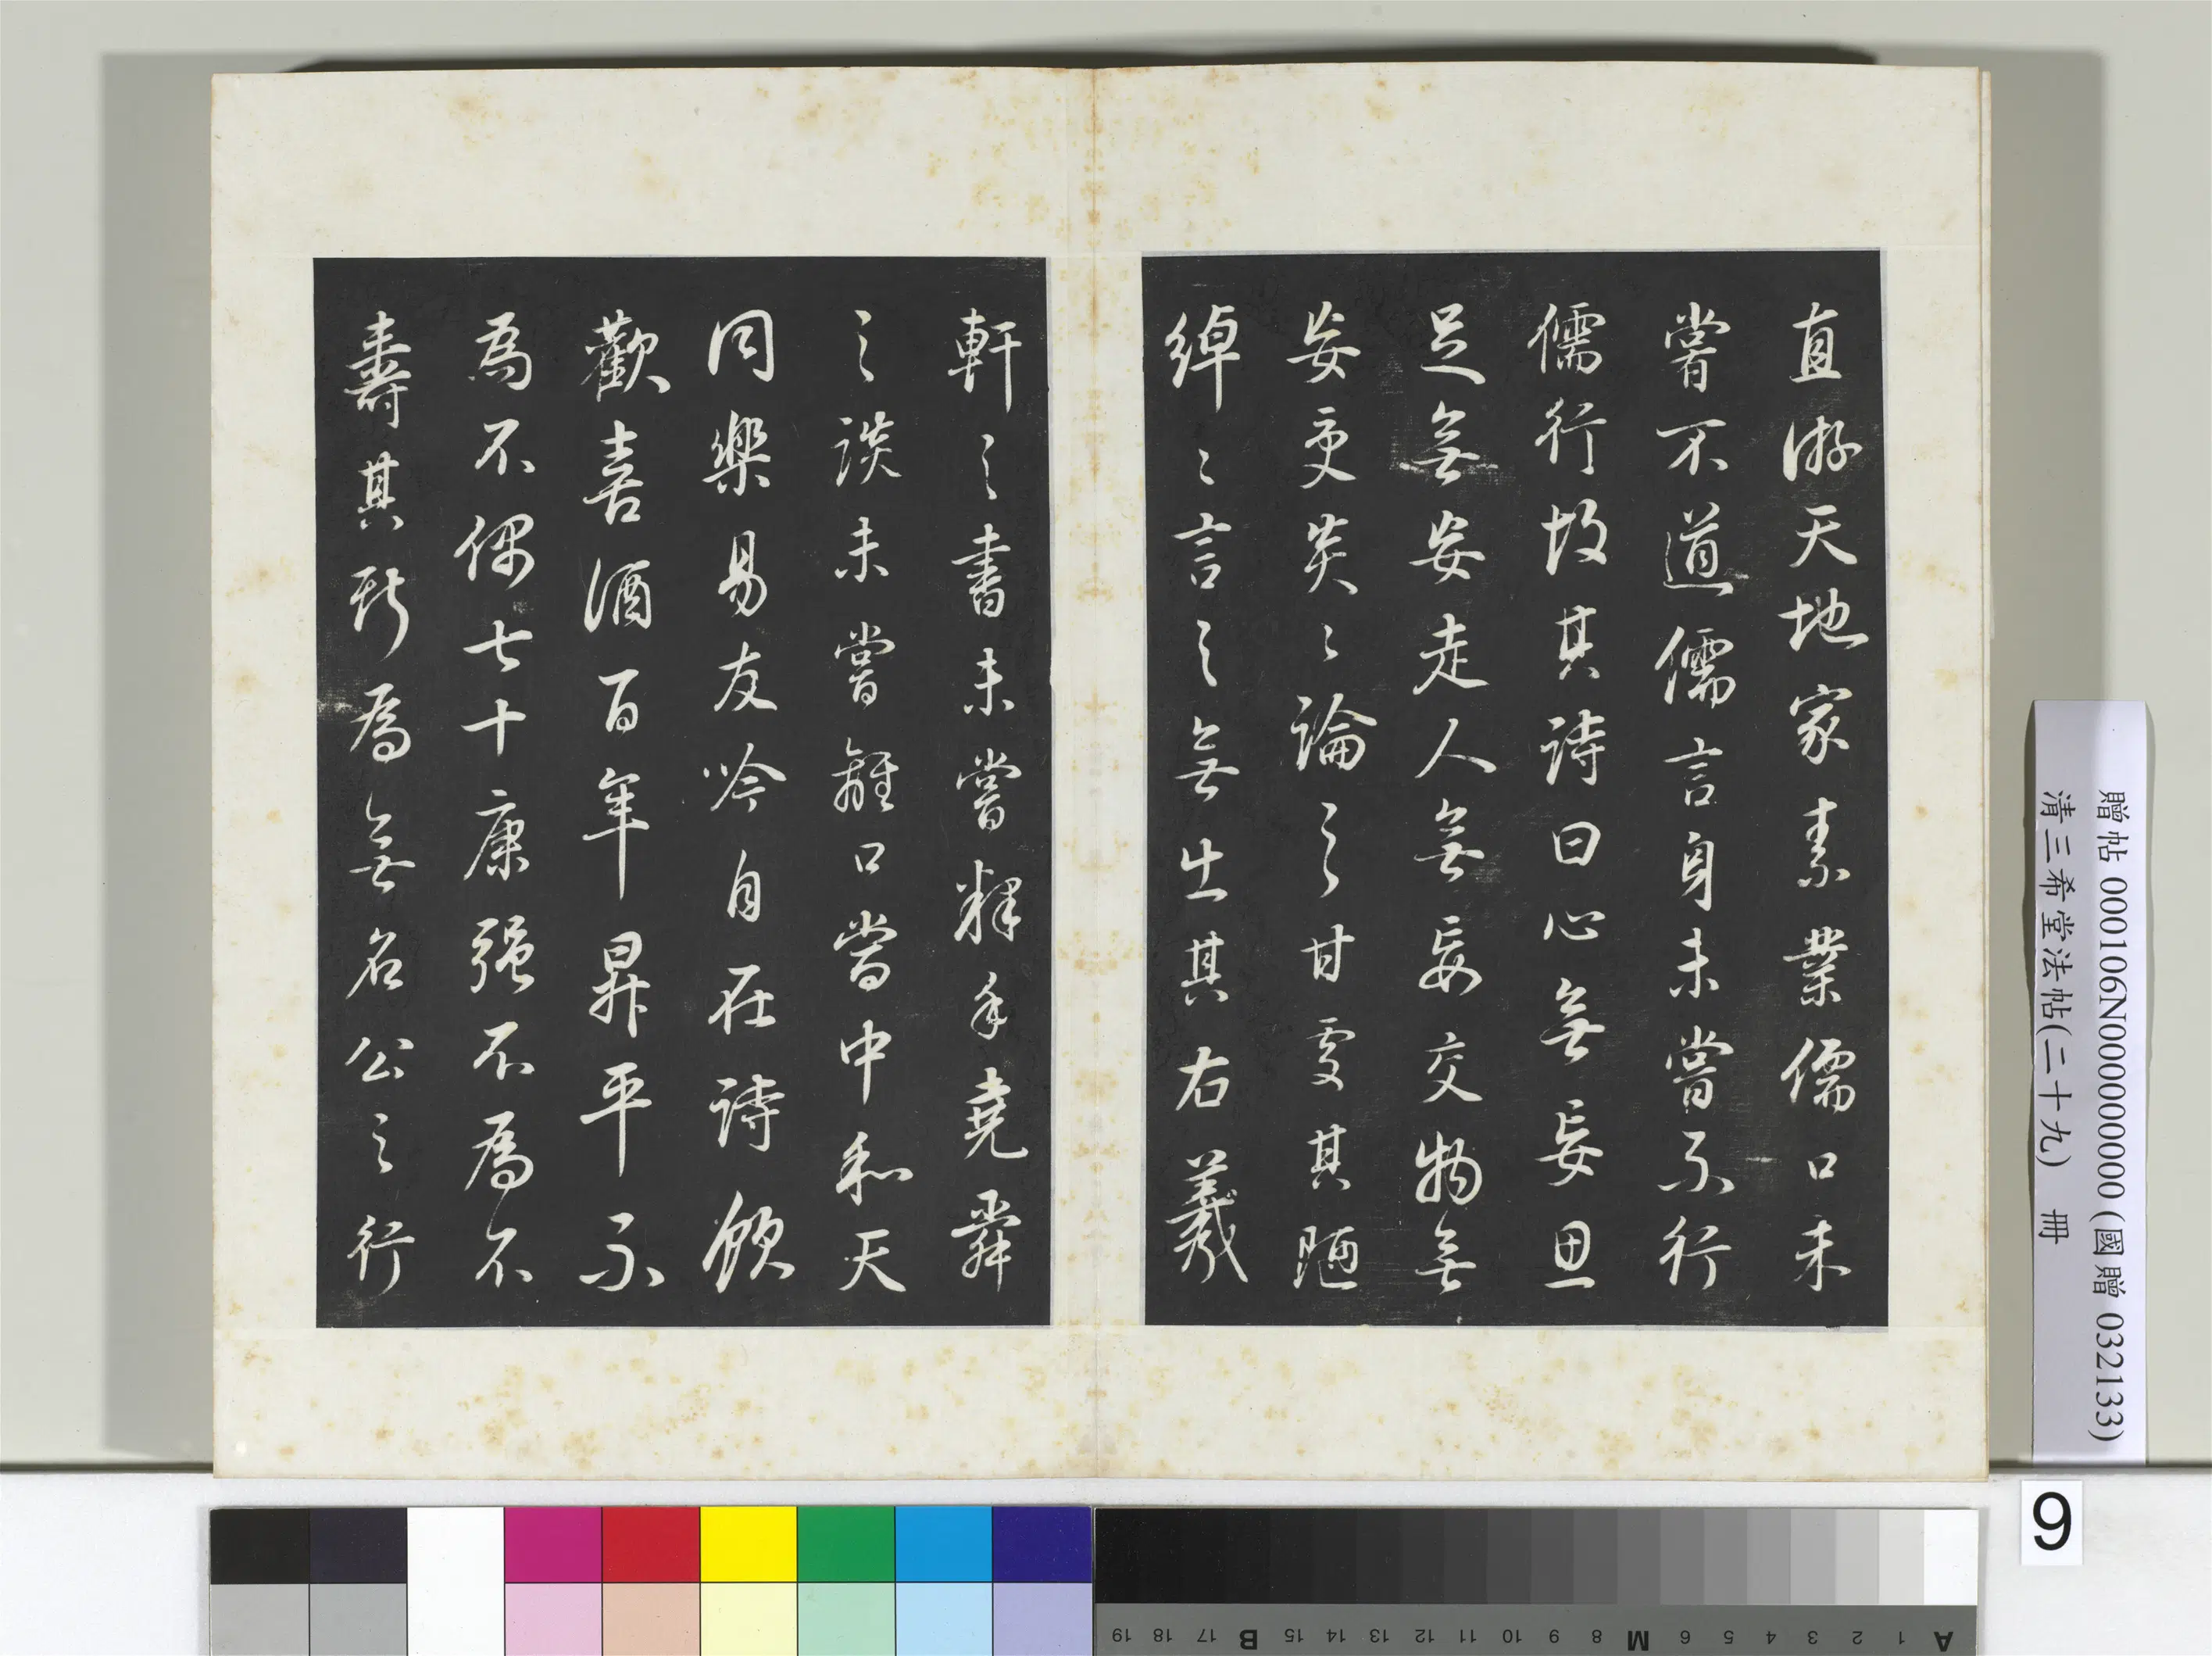 直游天地家素業儒口未
嘗不道儒言身未嘗不行
儒行故其詩曰心無妄思
足無妄走人無妄交物無
妄受炎炎論之甘處其陋
綽綽言之無出其右羲
軒之書未嘗釋手堯舜
之談未嘗離口當中和天
同樂易友吟自在詩飲
歡喜酒百年昇平不
為不偶七十康强不為不
壽其斯為無名公之行
贈帖 000106N000000000 (國贈 032133)
清三希堂法帖(二十九) 冊
9
A 1 2 3 4 5 6 M 8 9 10 11 12 13 14 15 B 17 18 19